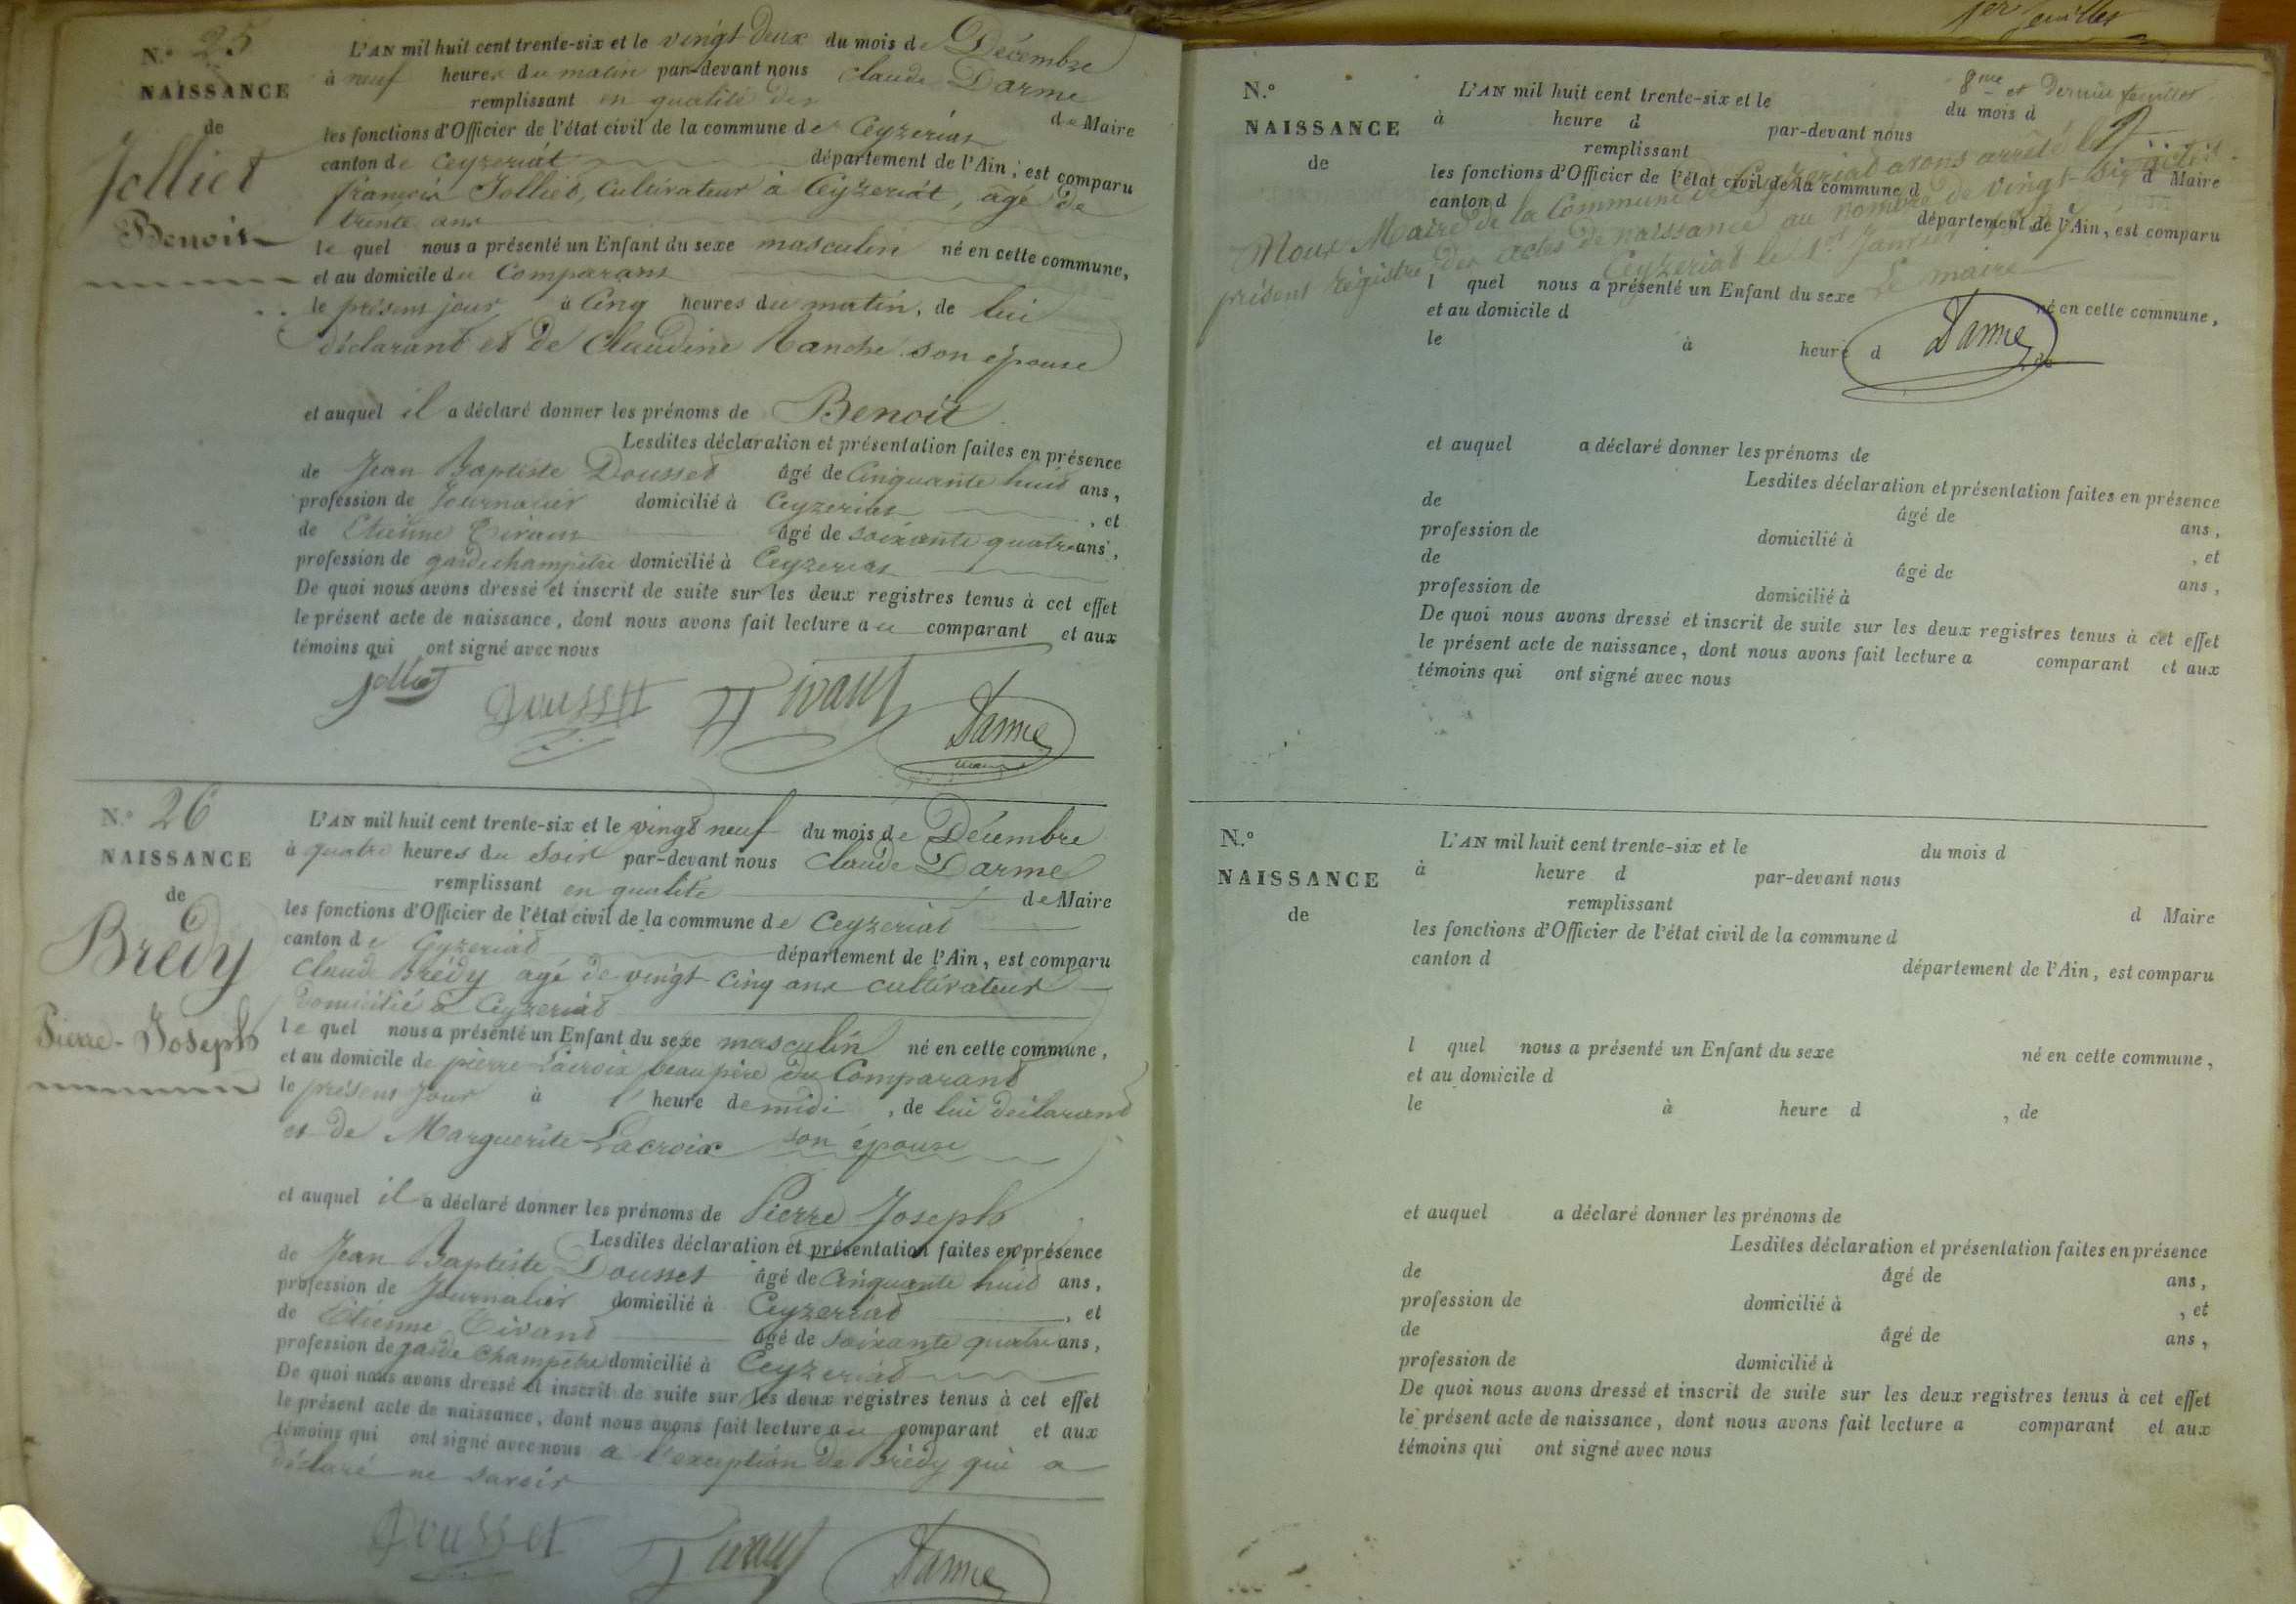 N.° 25
NAISSANCE
de
Jolliet
Benoit
L'AN mil huit cent trente-six et le vingt deux du mois de Décembre
à neuf heures du matin par-devant nous Claude Darme
remplissant en qualité de Maire
les fonctions d'Officier de l'état civil de la commune de Ceyzeriat
canton de Ceyzeriat département de l'Ain, est comparu
françois Jolliet, Cultivateur à Ceyzeriat, âgé de
trente ans
le quel nous a présenté un Enfant du sexe masculin né en cette commune,
et au domicile du Comparant
le présent jour à Cinq heures du matin, de lui
déclarant et de Claudine son épouse
et auquel il a déclaré donner les prénoms de Benoit
Lesdites déclaration et présentation faites en présence
de Jean Baptiste Dousset âgé de Cinquante huit ans,
profession de Journalier domicilié à Ceyzeriat , et
de Etienne Tirant âgé de soixante quatre ans,
profession de garde champêtre domicilié à Ceyzeriat
De quoi nous avons dressé et inscrit de suite sur les deux registres tenus à cet effet
le présent acte de naissance, dont nous avons fait lecture au comparant et aux
témoins qui ont signé avec nous
Jolliet Dousset Tirant Darme
maire
N.° 26
NAISSANCE
de
Brédy
Pierre-Joseph
L'AN mil huit cent trente-six et le vingt neuf du mois de Décembre
à quatre heures du Soir par-devant nous Claude Darme
remplissant en qualité de Maire
les fonctions d'Officier de l'état civil de la commune de Ceyzeriat
canton de Ceyzeriat département de l'Ain, est comparu
Claude Brédy agé de vingt Cinq ans cultivateur
domicilié à Ceyzeriat
le quel nous a présenté un Enfant du sexe masculin né en cette commune,
et au domicile de pierre Lacroix beau père du Comparant
le présent jour à 1 heure de midi , de lui déclarant
et de Marguerite Lacroix son épouse
et auquel il a déclaré donner les prénoms de Pierre Joseph
Lesdites déclaration et présentation faites en présence
de Jean Baptiste Dousset âgé de Cinquante huit ans,
profession de Journalier domicilié à Ceyzeriat , et
de Etienne Tirant âgé de soixante quatre ans,
profession de garde Champêtre domicilié à Ceyzeriat
De quoi nous avons dressé et inscrit de suite sur les deux registres tenus à cet effet
le présent acte de naissance, dont nous avons fait lecture au comparant et aux
témoins qui ont signé avec nous a l'exception de Brédy qui a
déclaré ne savoir
Dousset Tirant Darme
1er feuillet
8me et dernier feuillet
N.°
NAISSANCE
de
L'AN mil huit cent trente-six et le du mois d
à heure d par-devant nous
remplissant d Maire
les fonctions d'Officier de l'état civil de la commune d
canton d département de l'Ain, est comparu
Nous Maire de la Commune de Ceyzeriat avons arrêté le
présent Régistre des actes de naissance au nombre de vingt-six
Ceyzeriat le 1er Janvier
Le maire
l quel nous a présenté un Enfant du sexe né en cette commune,
et au domicile d
le à heure d , de
Darme
et auquel a déclaré donner les prénoms de
Lesdites déclaration et présentation faites en présence
de âgé de ans,
profession de domicilié à , et
de âgé de ans,
profession de domicilié à
De quoi nous avons dressé et inscrit de suite sur les deux registres tenus à cet effet
le présent acte de naissance, dont nous avons fait lecture a comparant et aux
témoins qui ont signé avec nous
N.°
NAISSANCE
de
L'AN mil huit cent trente-six et le du mois d
à heure d par-devant nous
remplissant d Maire
les fonctions d'Officier de l'état civil de la commune d
canton d département de l'Ain, est comparu
l quel nous a présenté un Enfant du sexe né en cette commune,
et au domicile d
le à heure d , de
et auquel a déclaré donner les prénoms de
Lesdites déclaration et présentation faites en présence
de âgé de ans,
profession de domicilié à , et
de âgé de ans,
profession de domicilié à
De quoi nous avons dressé et inscrit de suite sur les deux registres tenus à cet effet
le présent acte de naissance, dont nous avons fait lecture a comparant et aux
témoins qui ont signé avec nous